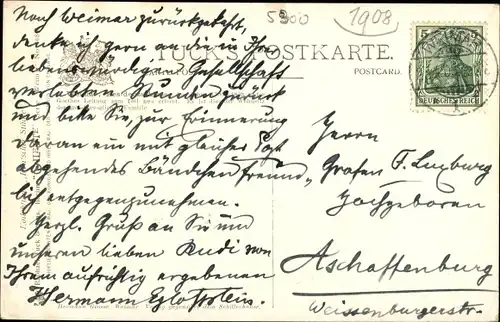 5900
1908
Nach Weimar zurückgekehrt,
denke ich gern an die in Ihrer
liebenswürdigen Gesellschaft
verlebten Stunden zurück
und bitte Sie, zur Erinnerung
daran ein mit gleicher Post
abgehendes Bändchen freund-
lich entgegenzunehmen.
Herzl. Gruß an Sie und
unseren lieben Rudi von
Ihrem aufrichtig ergebenen
Hermann Egloffstein.
TUCK'S POSTKARTE.
POSTCARD.
5
DEUTSCHES REICH
WEIMAR
Herrn
Grafen F. Luxburg
Hochgeboren
Aschaffenburg
Weissenburgerstr.